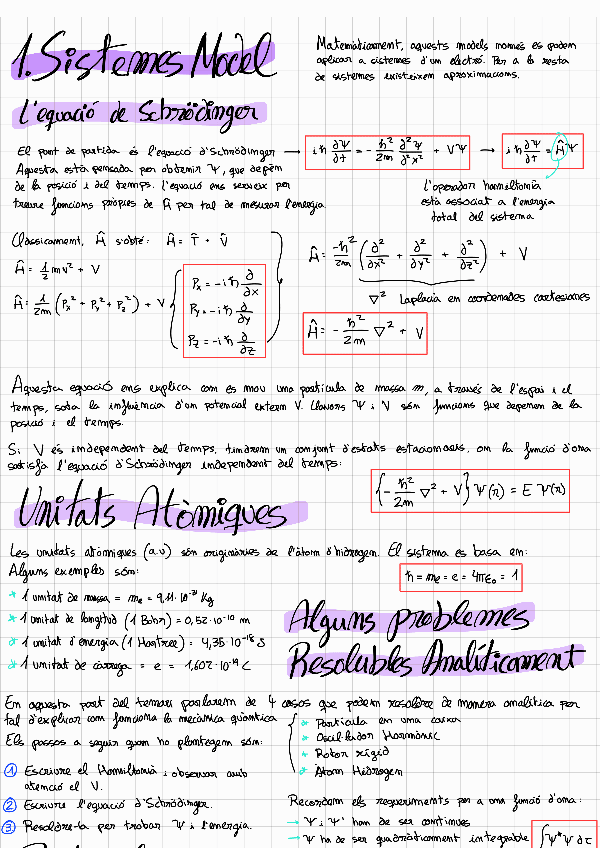 1. Sistemes Model
Matemàticament, aquests models només es poden
aplicar a sistemes d'un electró. Per a la resta
de sistemes existeixen aproximacions.
L'equació de Schrödinger
El punt de partida és l'equació d'Schrödinger → iħ ∂Ψ/∂t = - ħ²/2m ∂²Ψ/∂x² + VΨ → iħ ∂Ψ/∂t = ĤΨ
Aquesta està pensada per obtenir Ψ, que depèn
de la posició i del temps. L'equació ens serveix per
treure funcions pròpies de Ĥ per tal de mesurar l'energia.
L'operador hamiltonià
està associat a l'energia
total del sistema
Clàssicament, Ĥ s'obté: Ĥ = T̂ + V̂
Ĥ = 1/2 mv² + V
Ĥ = 1/2m (Px² + Py² + Pz²) + V
Px = -iħ ∂/∂x
Py = -iħ ∂/∂y
Pz = -iħ ∂/∂z
Ĥ = -ħ²/2m (∂²/∂x² + ∂²/∂y² + ∂²/∂z²) + V
∇² Laplacià en coordenades cartesianes
Ĥ = - ħ²/2m ∇² + V
Aquesta equació ens explica com es mou una partícula de massa m, a través de l'espai i el
temps, sota la influència d'un potencial extern V. Llavors Ψ i V són funcions que depenen de la
posició i el temps.
Si V és independent del temps, tindrem un conjunt d'estats estacionaris, on la funció d'ona
satisfà l'equació d'Schrödinger independent del temps:
{- ħ²/2m ∇² + V} Ψ(r) = E Ψ(r)
Unitats Atòmiques
Les unitats atòmiques (a.u) són originàries de l'àtom d'hidrogen. El sistema es basa en:
Alguns exemples són:
ħ = me = e = 4πε₀ = 1
* 1 unitat de massa = me = 9,11·10⁻³¹ Kg
* 1 unitat de longitud (1 Bohr) = 0,52·10⁻¹⁰ m
* 1 unitat d'energia (1 Hartree) = 4,35·10⁻¹⁸ J
* 1 unitat de càrrega = e = 1,602·10⁻¹⁹ C
Alguns problemes
Resolubles Analíticament
En aquesta part del temari parlarem de 4 casos que podem resoldre de manera analítica per
tal d'explicar com funciona la mecànica quàntica
* Partícula en una caixa
* Oscil·lador Harmònic
* Rotor rígid
* Àtom Hidrogen
Els passos a seguir quan ho plantegem són:
1 Escriure el Hamiltonià i observar amb
atenció el V.
2 Escriure l'equació d'Schrödinger.
3 Resoldre-la per trobar Ψ i l'energia.
Recordem els requeriments per a una funció d'ona:
→ Ψ i Ψ' han de ser contínues
→ Ψ ha de ser quadràticament integrable ∫Ψ*Ψ dτ